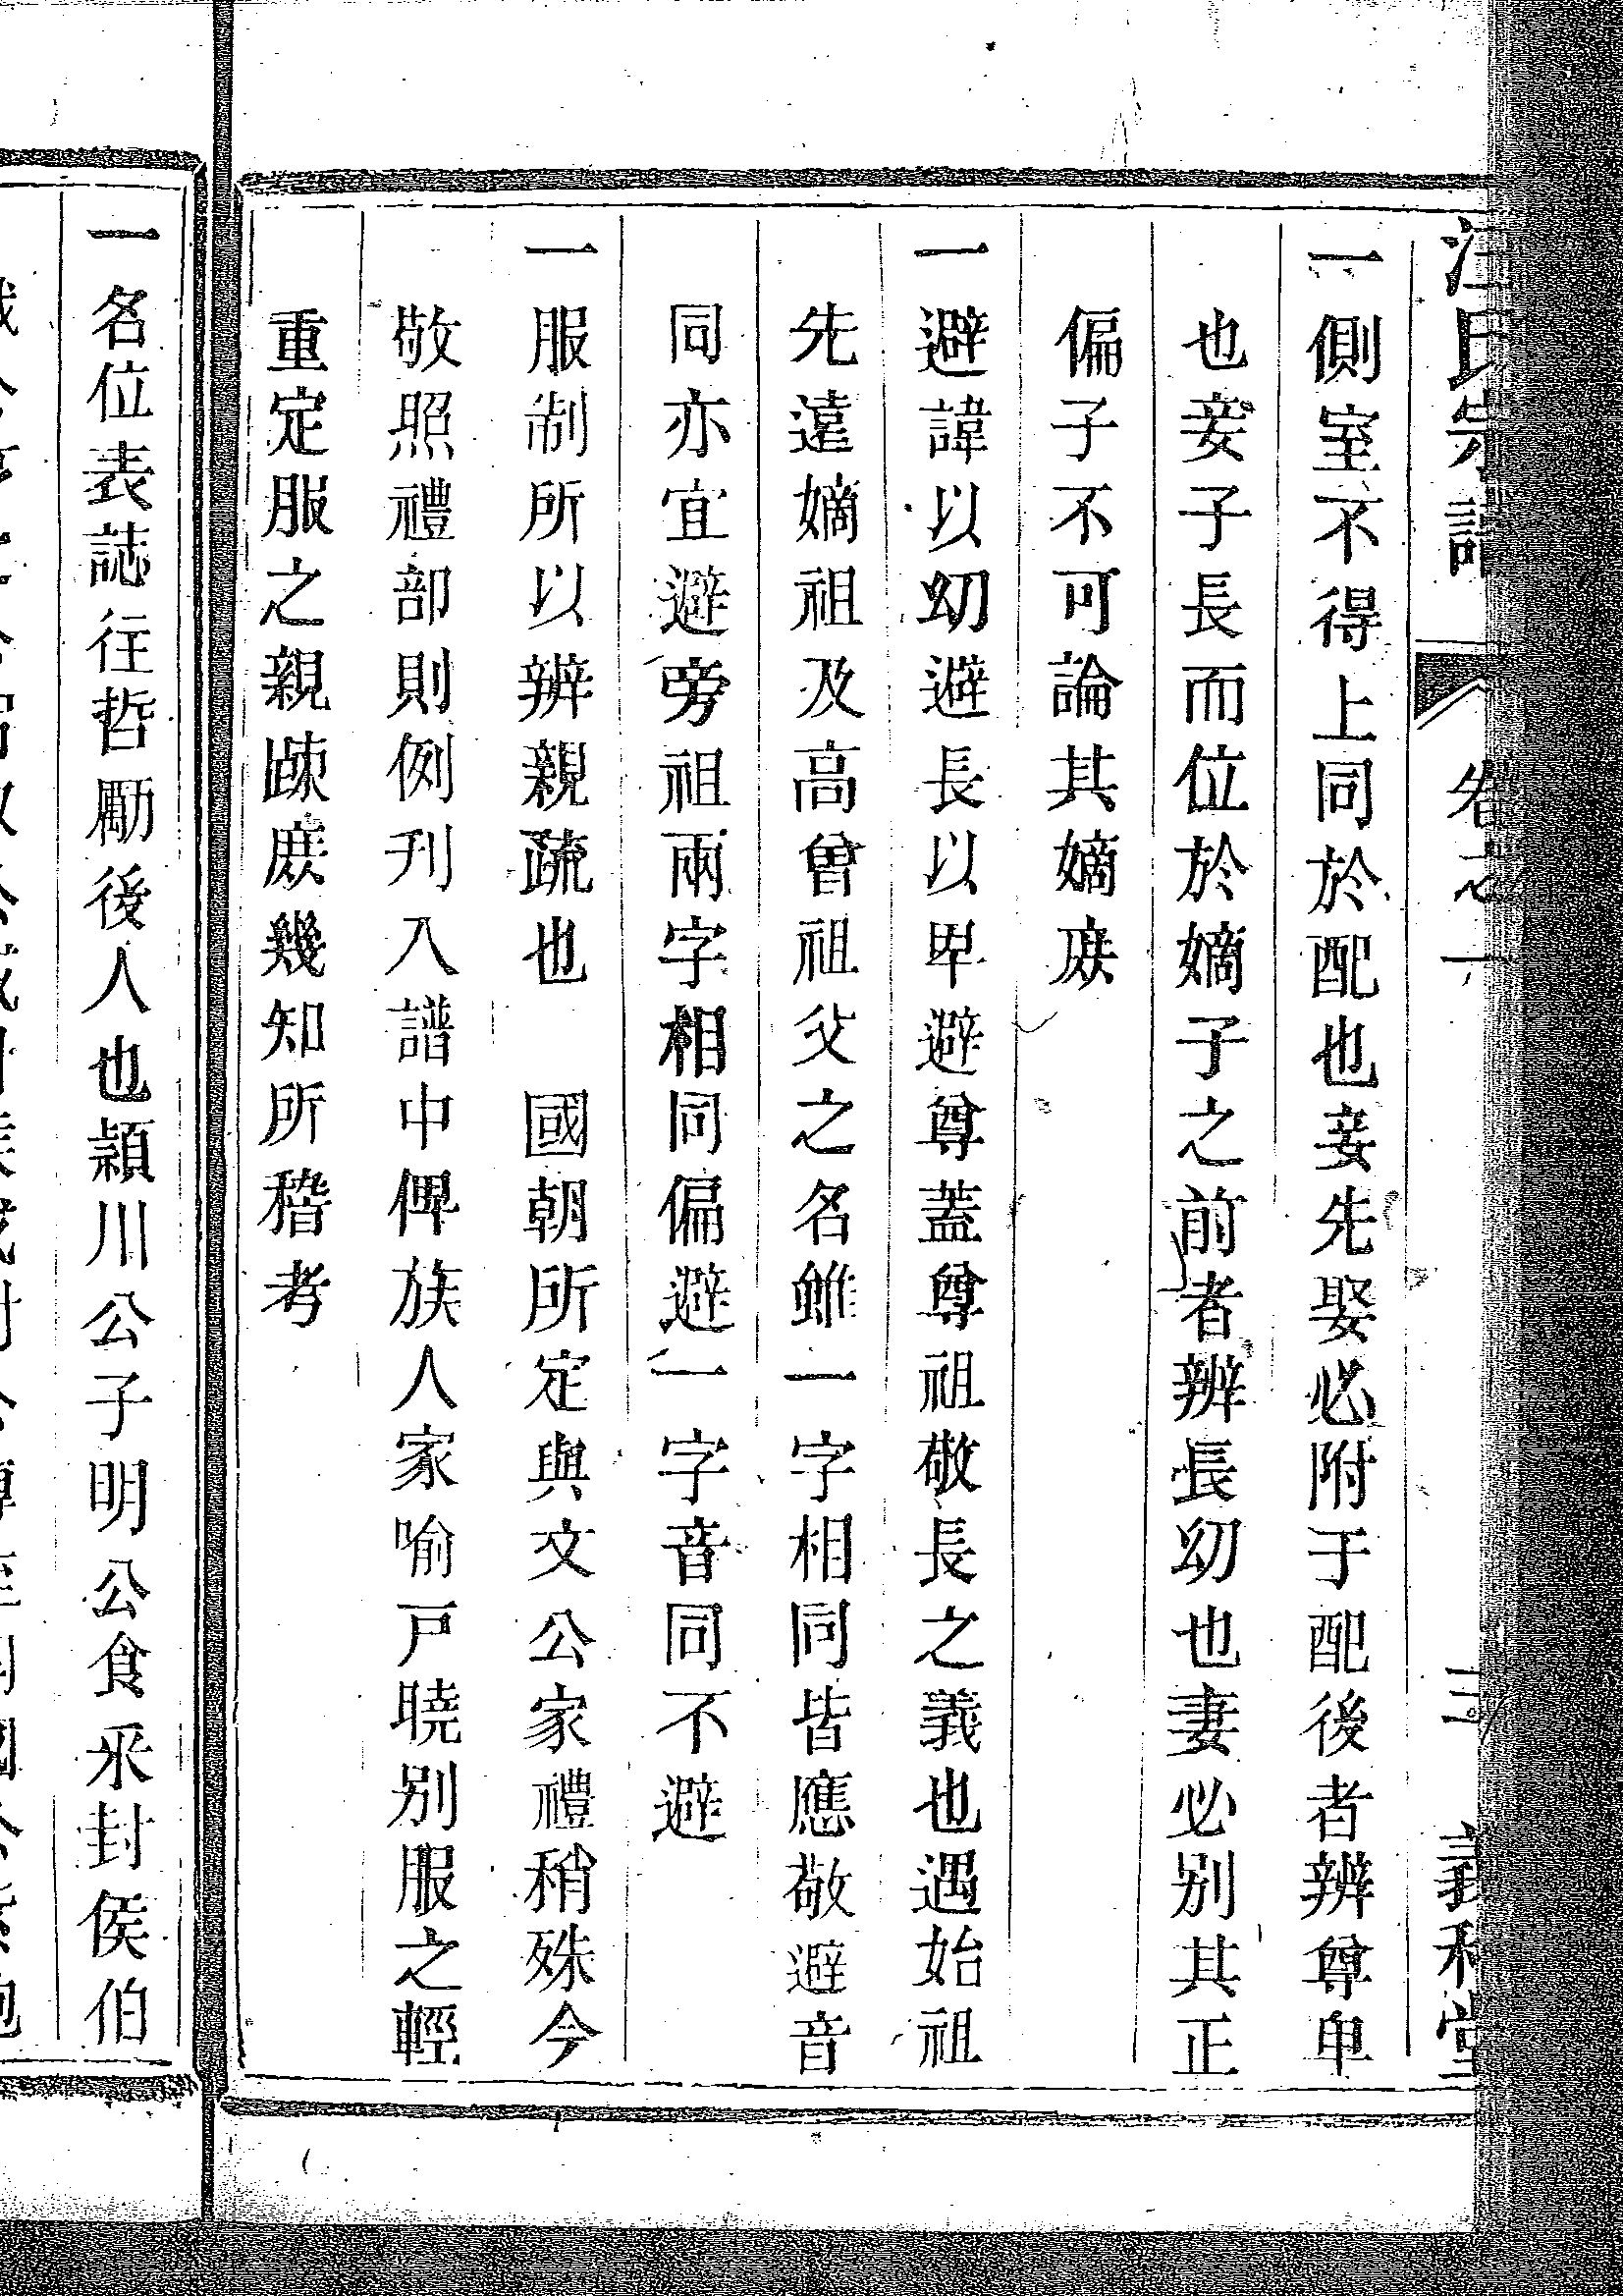 氏宗譜 卷之一 三 義和堂
一側室不得上同於配也妾先娶必附于配後者辨尊卑
也妾子長而位於嫡子之前者辨長幼也妻必别其正
偏子不可論其嫡庶
一避諱以幼避長以卑避尊蓋尊祖敬長之義也遇始祖
先遠嫡祖及高曾祖父之名雖一字相同皆應敬避音
同亦宜避旁祖兩字相同偏避一字音同不避
一服制所以辨親疏也 國朝所定與文公家禮稍殊今
敬照禮部則例刋入譜中俾族人家喻戸曉别服之輕
重定服之親踈庶幾知所稽考
一名位表誌往哲勵後人也潁川公子明公食采封侯伯